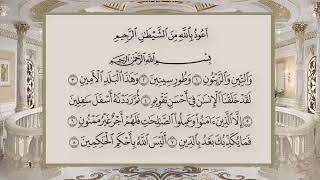 أَعُوذُ بِاللَّهِ مِنَ الشَّيْطَٰنِ الرَّجِيمِ
بِسْمِ اللَّهِ الرَّحْمَٰنِ الرَّحِيمِ
وَالتِّينِ وَالزَّيْتُونِ ١ وَطُورِ سِينِينَ ٢ وَهَٰذَا الْبَلَدِ الْأَمِينِ ٣
لَقَدْ خَلَقْنَا الْإِنسَٰنَ فِي أَحْسَنِ تَقْوِيمٍ ٤ ثُمَّ رَدَدْنَٰهُ أَسْفَلَ سَٰفِلِينَ ٥
إِلَّا الَّذِينَ ءَامَنُوا وَعَمِلُوا الصَّٰلِحَٰتِ فَلَهُمْ أَجْرٌ غَيْرُ مَمْنُونٍ ٦
فَمَا يُكَذِّبُكَ بَعْدُ بِالدِّينِ ٧ أَلَيْسَ اللَّهُ بِأَحْكَمِ الْحَٰكِمِينَ ٨